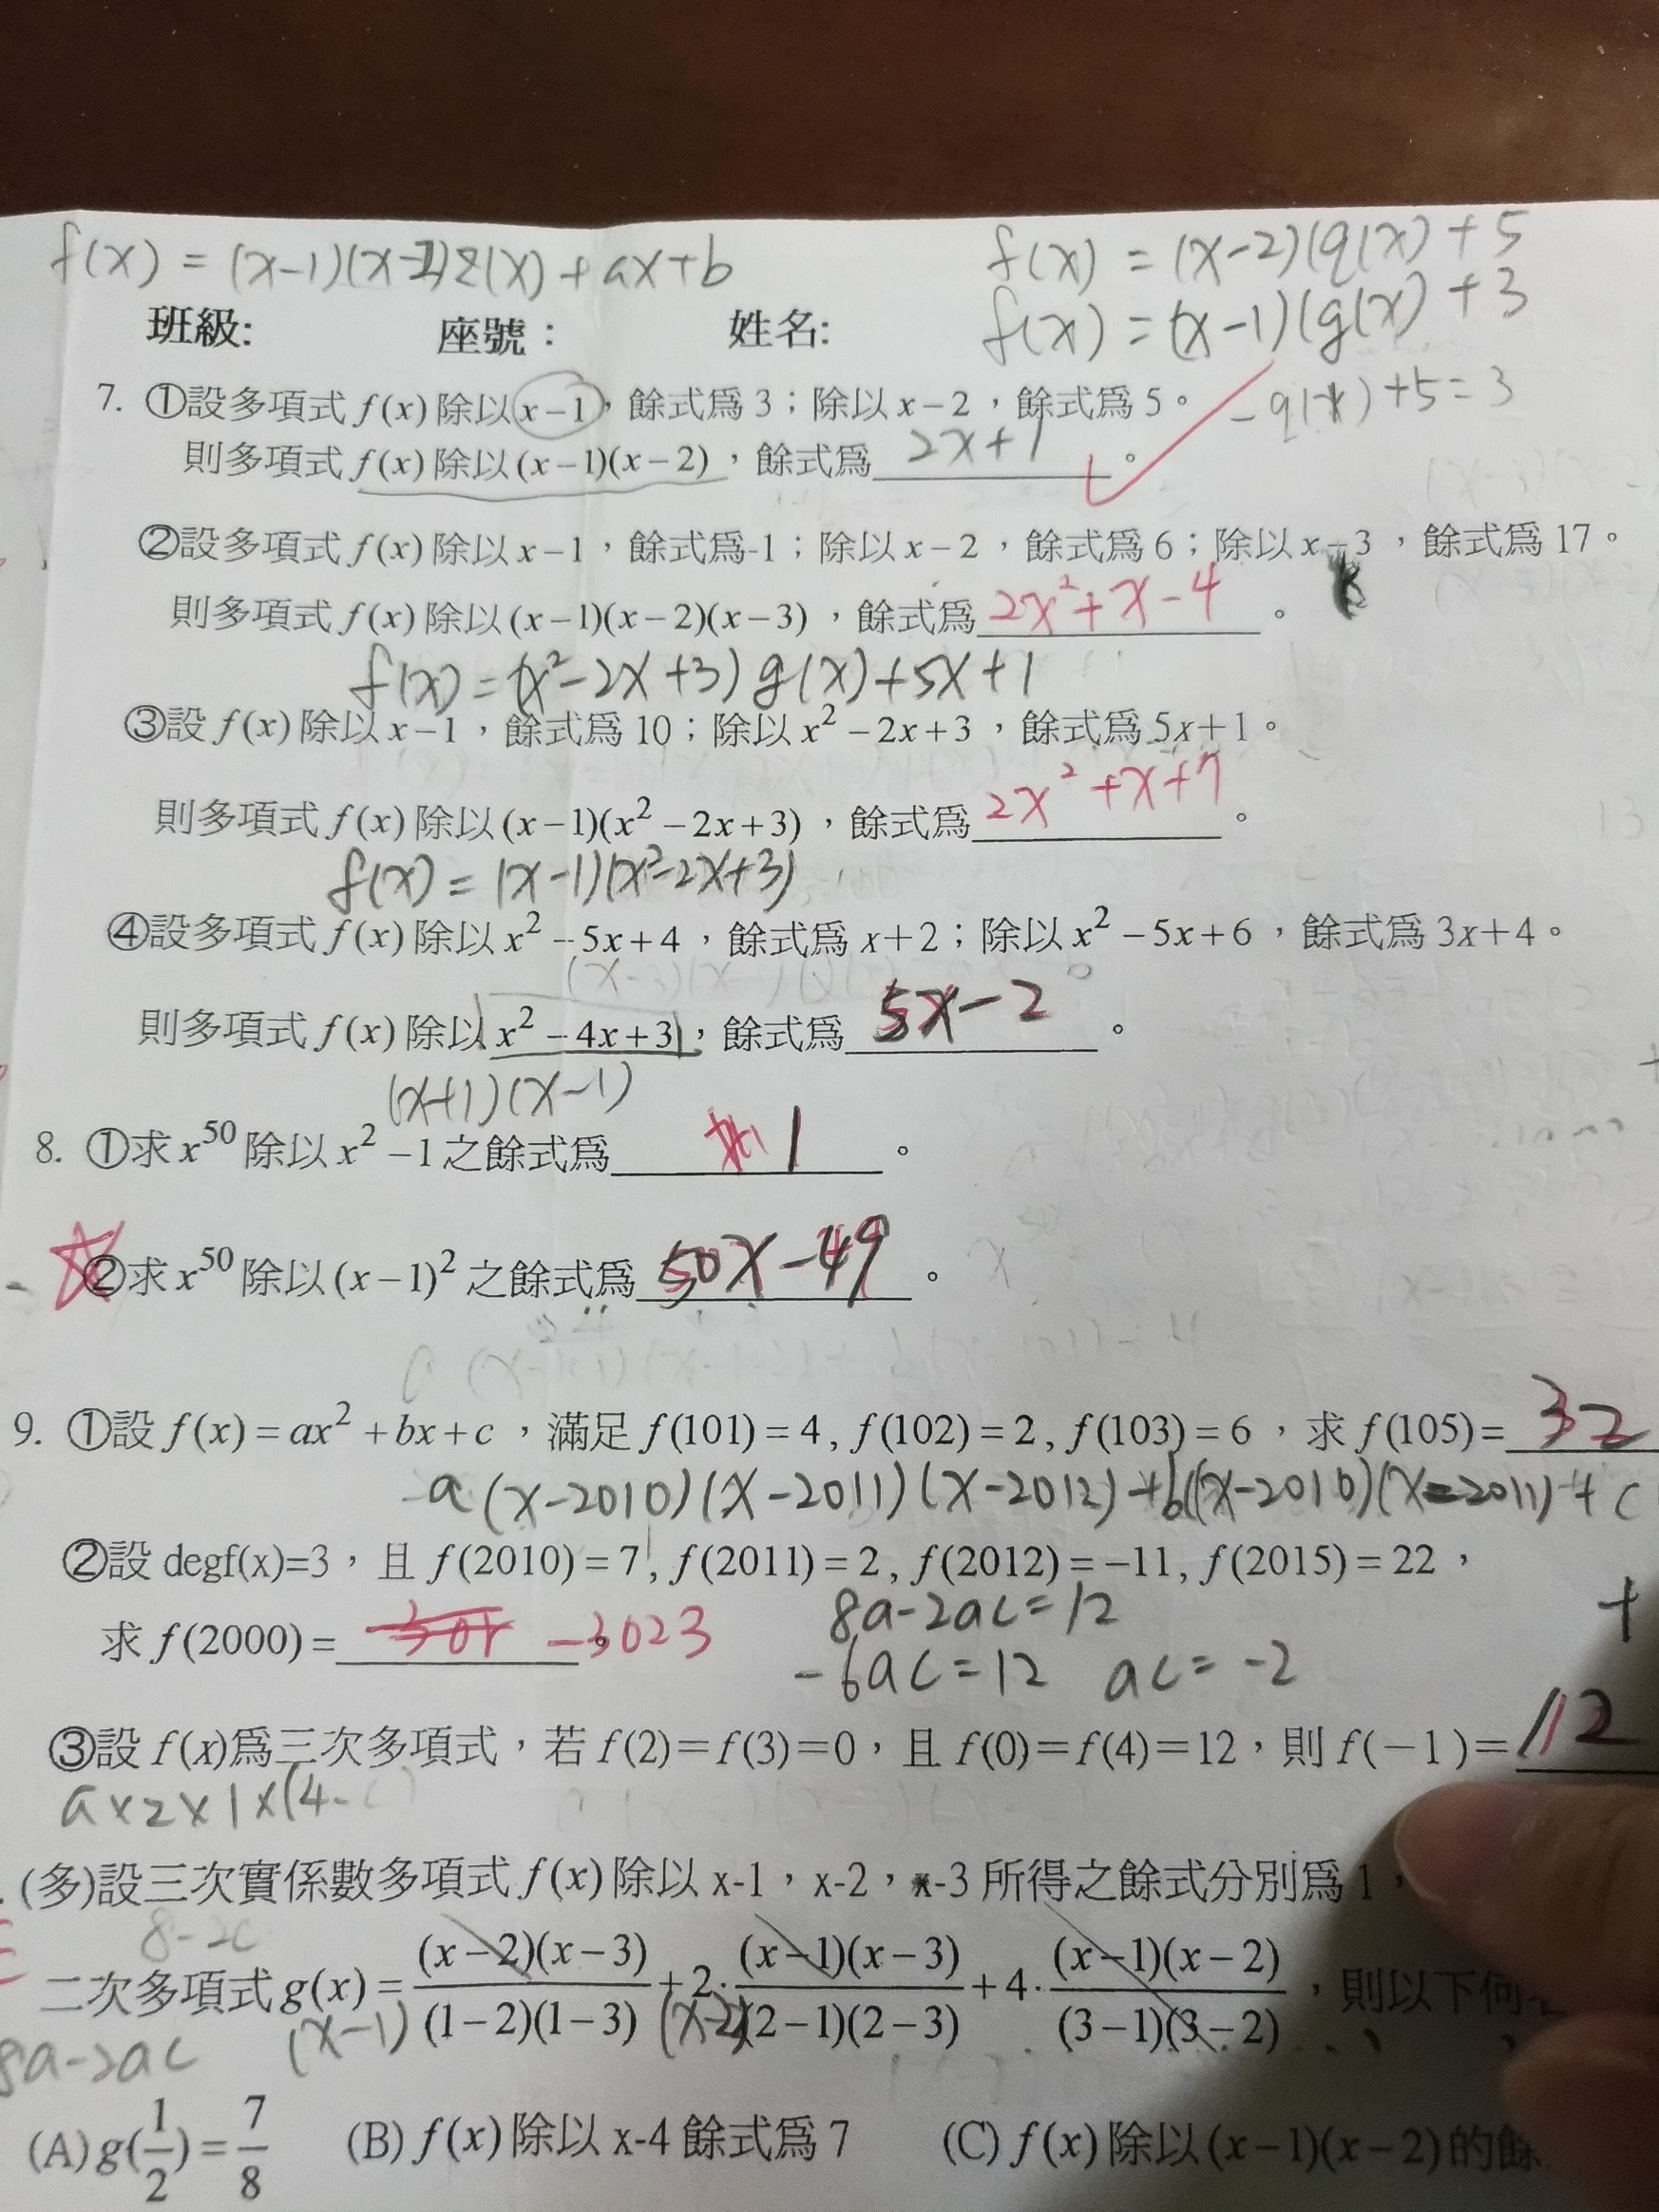 f(x) = (x-1)(x-2)g(x) + ax+b
f(x) = (x-2)(q(x) + 5
f(x) = (x-1)(g(x) + 3
班級: 座號： 姓名:
- q(x) +5 = 3
7. ①設多項式 f(x) 除以 x-1，餘式爲 3；除以 x-2，餘式爲 5。
則多項式 f(x) 除以 (x-1)(x-2)，餘式爲 2x+1。
②設多項式 f(x) 除以 x-1，餘式爲-1；除以 x-2，餘式爲 6；除以 x-3，餘式爲 17。
則多項式 f(x) 除以 (x-1)(x-2)(x-3)，餘式爲 2x²+x-4。
f(x) = (x²-2x+3) g(x)+5x+1
③設 f(x) 除以 x-1，餘式爲 10；除以 x²-2x+3，餘式爲 5x+1。
則多項式 f(x) 除以 (x-1)(x²-2x+3)，餘式爲 2x²+x+7。
f(x) = (x-1)(x²-2x+3)
④設多項式 f(x) 除以 x²-5x+4，餘式爲 x+2；除以 x²-5x+6，餘式爲 3x+4。
則多項式 f(x) 除以 x²-4x+3，餘式爲 5x-2。
(x+1)(x-1)
8. ①求 x⁵⁰ 除以 x²-1 之餘式爲 1。
②求 x⁵⁰ 除以 (x-1)² 之餘式爲 50x-49。
9. ①設 f(x)=ax²+bx+c，滿足 f(101)=4, f(102)=2, f(103)=6，求 f(105)= 32
a(x-2010)(x-2011)(x-2012)+b((x-2010)(x-2011)+c
②設 degf(x)=3，且 f(2010)=7, f(2011)=2, f(2012)=-11, f(2015)=22，
8a-2ac=12
求 f(2000)= -3023
-6ac=12 ac=-2
③設 f(x)爲三次多項式，若 f(2)=f(3)=0，且 f(0)=f(4)=12，則 f(-1)= 112
a×2×1×(4-c)
(多)設三次實係數多項式 f(x) 除以 x-1，x-2，x-3 所得之餘式分別爲 1，
8-2c
二次多項式 g(x)= (x-2)(x-3)/(1-2)(1-3) +2· (x-1)(x-3)/(2-1)(2-3) +4· (x-1)(x-2)/(3-1)(3-2)，則以下何
(x-1) (x-2)
8a-2ac
(A) g(1/2)=7/8 (B) f(x) 除以 x-4 餘式爲 7 (C) f(x) 除以 (x-1)(x-2) 的餘